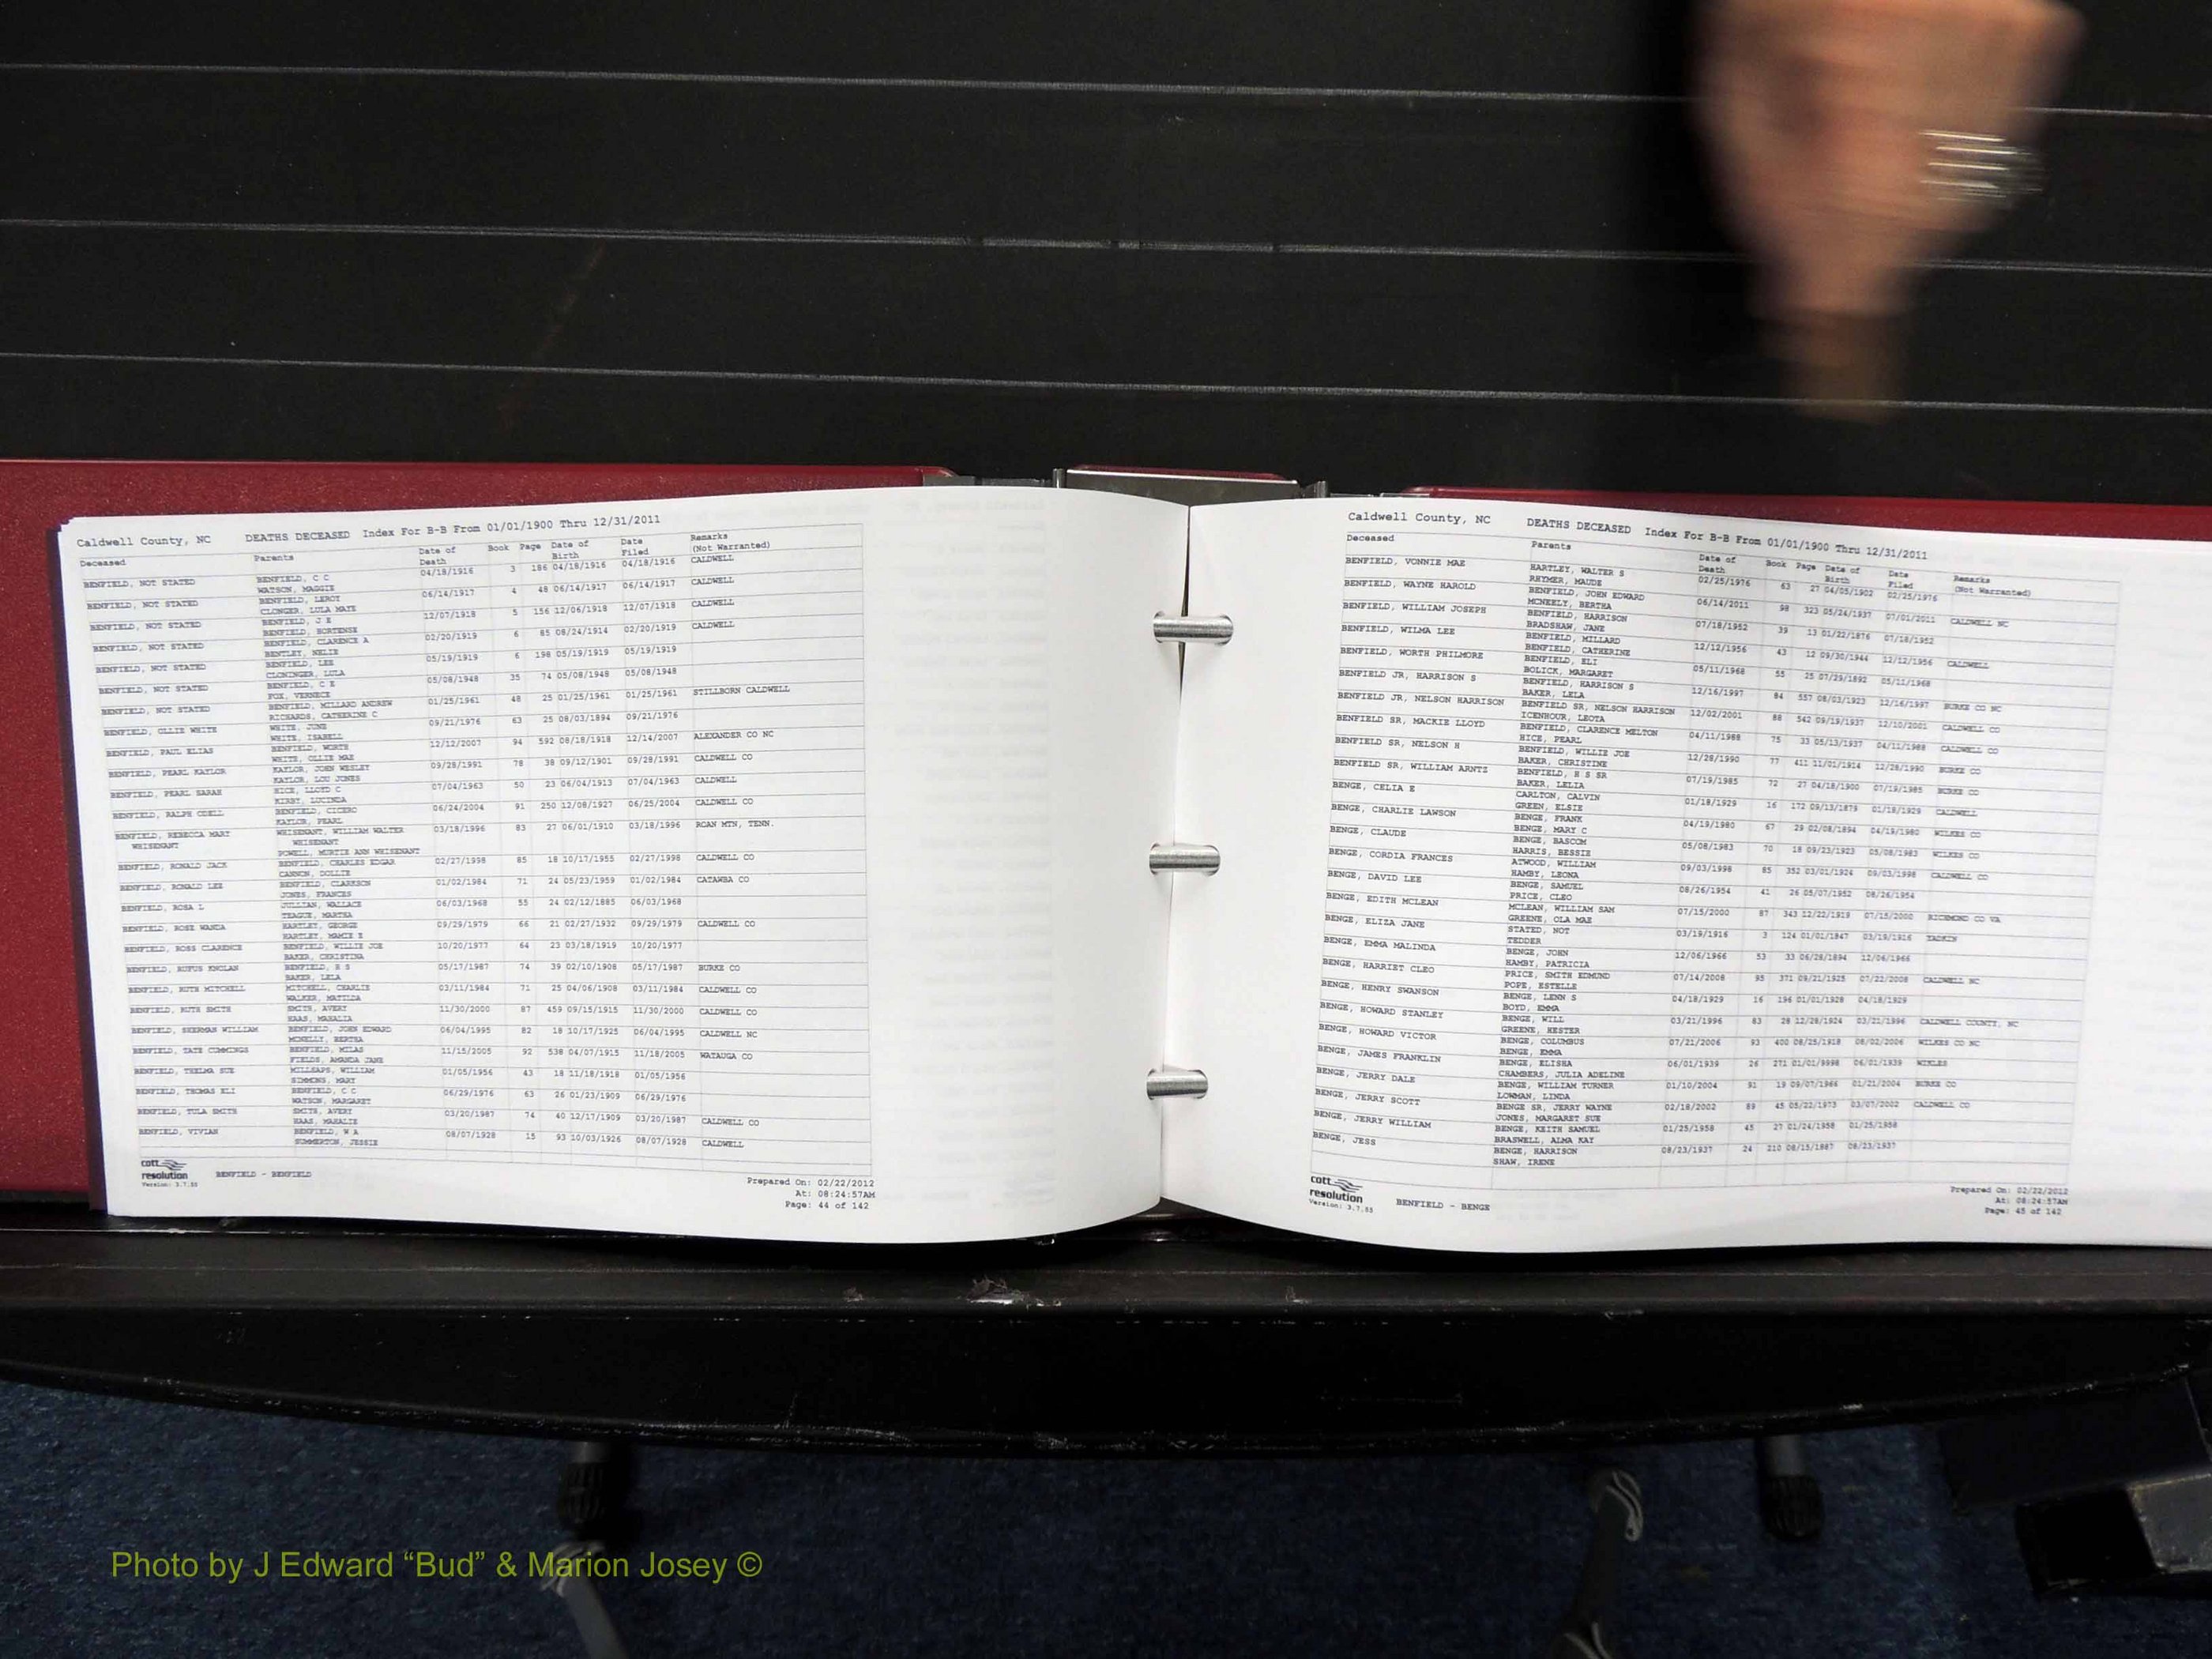 Caldwell County, NC DEATHS DECEASED Index For B-B From 01/01/1900 Thru 12/31/2011
Deceased Parents Date of Death Book Page Date of Birth Date Filed Remarks (Not Warranted)
BENFIELD, NOT STATED BENFIELD, C C 04/18/1916 3 186 04/18/1916 04/18/1916 CALDWELL
WATSON, MAGGIE
BENFIELD, NOT STATED BENFIELD, LEROY 06/14/1917 4 48 06/14/1917 06/14/1917 CALDWELL
CLONGER, LULA MAYE
BENFIELD, NOT STATED BENFIELD, J E 12/07/1918 5 156 12/06/1918 12/07/1918 CALDWELL
BENFIELD, HORTENSE
BENFIELD, NOT STATED BENFIELD, CLARENCE A 02/20/1919 6 85 08/24/1914 02/20/1919 CALDWELL
BENTLEY, NELIE
BENFIELD, NOT STATED BENFIELD, LEE 05/19/1919 6 198 05/19/1919 05/19/1919
CLONINGER, LULA
BENFIELD, NOT STATED BENFIELD, C E 05/08/1948 35 74 05/08/1948 05/08/1948
FOX, VERNECE
BENFIELD, NOT STATED BENFIELD, MILLARD ANDREW 01/25/1961 48 25 01/25/1961 01/25/1961 STILLBORN CALDWELL
RICHARDS, CATHERINE C
BENFIELD, OLLIE WHITE WHITE, JUNE 09/21/1976 63 25 08/03/1894 09/21/1976
WHITE, ISABELL
BENFIELD, PAUL ELIAS BENFIELD, WORTH 12/12/2007 94 592 08/18/1918 12/14/2007 ALEXANDER CO NC
WHITE, OLLIE MAE
BENFIELD, PEARL KAYLOR KAYLOR, JOHN WESLEY 09/28/1991 78 38 09/12/1901 09/28/1991 CALDWELL CO
KAYLOR, LOU JONES
BENFIELD, PEARL SARAH HICE, LLOYD C 07/04/1963 50 23 06/04/1913 07/04/1963 CALDWELL
KIRBY, LUCINDA
BENFIELD, RALPH ODELL BENFIELD, CICERO 06/24/2004 91 250 12/08/1927 06/25/2004 CALDWELL CO
KAYLOR, PEARL
BENFIELD, REBECCA MARY WHISENANT WHISENANT, WILLIAM WALTER 03/18/1996 83 27 06/01/1910 03/18/1996 ROAN MTN, TENN.
WHISENANT
POWELL, MURTIE ANN WHISENANT
BENFIELD, RONALD JACK BENFIELD, CHARLES EDGAR 02/27/1998 85 18 10/17/1955 02/27/1998 CALDWELL CO
CANNON, DOLLIE
BENFIELD, RONALD LEE BENFIELD, CLARKSON 01/02/1984 71 24 05/23/1959 01/02/1984 CATAWBA CO
JONES, FRANCES
BENFIELD, ROSA L JULLIAN, WALLACE 06/03/1968 55 24 02/12/1885 06/03/1968
TEAGUE, MARTHA
BENFIELD, ROSE WANDA HARTLEY, GEORGE 09/29/1979 66 21 02/27/1932 09/29/1979 CALDWELL CO
HARTLEY, MAMIE E
BENFIELD, ROSS CLARENCE BENFIELD, WILLIE JOE 10/20/1977 64 23 03/18/1919 10/20/1977
BAKER, CHRISTINA
BENFIELD, RUFUS KNOLAN BENFIELD, H S 05/17/1987 74 39 02/10/1908 05/17/1987 BURKE CO
BAKER, LELA
BENFIELD, RUTH MITCHELL MITCHELL, CHARLIE 03/11/1984 71 25 04/06/1908 03/11/1984 CALDWELL CO
WALKER, MATILDA
BENFIELD, RUTH SMITH SMITH, AVERY 11/30/2000 87 459 09/15/1915 11/30/2000 CALDWELL CO
HAAS, MAHALIA
BENFIELD, SHERMAN WILLIAM BENFIELD, JOHN EDWARD 06/04/1995 82 18 10/17/1925 06/04/1995 CALDWELL NC
MCNELLY, BERTHA
BENFIELD, TATE CUMMINGS BENFIELD, MILAS 11/15/2005 92 538 04/07/1915 11/18/2005 WATAUGA CO
FIELDS, AMANDA JANE
BENFIELD, THELMA SUE MILLSAPS, WILLIAM 01/05/1956 43 18 11/18/1918 01/05/1956
SIMMONS, MARY
BENFIELD, THOMAS ELI BENFIELD, C C 06/29/1976 63 26 01/23/1909 06/29/1976
WATSON, MARGARET
BENFIELD, TULA SMITH SMITH, AVERY 03/20/1987 74 40 12/17/1909 03/20/1987 CALDWELL CO
HAAS, MAHALIE
BENFIELD, VIVIAN BENFIELD, W A 08/07/1928 15 93 10/03/1926 08/07/1928 CALDWELL
SUMMERTON, JESSIE
cott
resolution BENFIELD - BENFIELD
Version: 3.7.55
Prepared On: 02/22/2012
At: 08:24:57AM
Page: 44 of 142
Caldwell County, NC DEATHS DECEASED Index For B-B From 01/01/1900 Thru 12/31/2011
Deceased Parents Date of Death Book Page Date of Birth Date Filed Remarks (Not Warranted)
BENFIELD, VONNIE MAE HARTLEY, WALTER S 02/25/1976 63 27 04/05/1902 02/25/1976
RHYMER, MAUDE
BENFIELD, WAYNE HAROLD BENFIELD, JOHN EDWARD 06/14/2011 98 323 05/24/1937 07/01/2011 CALDWELL NC
MCNEELY, BERTHA
BENFIELD, WILLIAM JOSEPH BENFIELD, HARRISON 07/18/1952 39 13 01/22/1876 07/18/1952
BRADSHAW, JANE
BENFIELD, WILMA LEE BENFIELD, MILLARD 12/12/1956 43 12 09/30/1944 12/12/1956 CALDWELL
BENFIELD, CATHERINE
BENFIELD, WORTH PHILMORE BENFIELD, ELI 05/11/1968 55 25 07/29/1892 05/11/1968
BOLICK, MARGARET
BENFIELD JR, HARRISON S BENFIELD, HARRISON S 12/16/1997 84 557 08/03/1923 12/16/1997 BURKE CO NC
BAKER, LELA
BENFIELD JR, NELSON HARRISON BENFIELD SR, NELSON HARRISON 12/02/2001 88 542 09/19/1937 12/10/2001 CALDWELL CO
ICENHOUR, LEOTA
BENFIELD SR, MACKIE LLOYD BENFIELD, CLARENCE MELTON 04/11/1988 75 33 05/13/1937 04/11/1988 CALDWELL CO
HICE, PEARL
BENFIELD SR, NELSON H BENFIELD, WILLIE JOE 12/28/1990 77 411 11/01/1914 12/28/1990 BURKE CO
BAKER, CHRISTINE
BENFIELD SR, WILLIAM ARNTZ BENFIELD, H S SR 07/19/1985 72 27 04/18/1900 07/19/1985 BURKE CO
BAKER, LELIA
BENGE, CELIA E CARLTON, CALVIN 01/18/1929 16 172 09/13/1879 01/18/1929 CALDWELL
GREEN, ELSIE
BENGE, CHARLIE LAWSON BENGE, FRANK 04/19/1980 67 29 02/08/1894 04/19/1980 WILKES CO
BENGE, MARY C
BENGE, CLAUDE BENGE, BASCOM 05/08/1983 70 18 09/23/1923 05/08/1983 WILKES CO
HARRIS, BESSIE
BENGE, CORDIA FRANCES ATWOOD, WILLIAM 09/03/1998 85 352 03/01/1924 09/03/1998 CALDWELL CO
HAMBY, LEONA
BENGE, DAVID LEE BENGE, SAMUEL 08/26/1954 41 26 05/07/1952 08/26/1954
PRICE, CLEO
BENGE, EDITH MCLEAN MCLEAN, WILLIAM SAM 07/15/2000 87 343 12/22/1919 07/15/2000 RICHMOND CO VA
GREENE, OLA MAE
BENGE, ELIZA JANE STATED, NOT 03/19/1916 3 124 01/01/1847 03/19/1916 YADKIN
TEDDER
BENGE, EMMA MALINDA BENGE, JOHN 12/06/1966 53 33 06/28/1894 12/06/1966
HAMBY, PATRICIA
BENGE, HARRIET CLEO PRICE, SMITH EDMUND 07/14/2008 95 371 09/21/1925 07/22/2008 CALDWELL NC
POPE, ESTELLE
BENGE, HENRY SWANSON BENGE, LENN S 04/18/1929 16 196 01/01/1928 04/18/1929
BOYD, EMMA
BENGE, HOWARD STANLEY BENGE, WILL 03/21/1996 83 28 12/28/1924 03/21/1996 CALDWELL COUNTY, NC
GREENE, HESTER
BENGE, HOWARD VICTOR BENGE, COLUMBUS 07/21/2006 93 400 08/25/1918 08/02/2006 WILKES CO NC
BENGE, EMMA
BENGE, JAMES FRANKLIN BENGE, ELISHA 06/01/1939 26 271 01/01/9998 06/01/1939 WIKLES
CHAMBERS, JULIA ADELINE
BENGE, JERRY DALE BENGE, WILLIAM TURNER 01/10/2004 91 19 09/07/1966 01/21/2004 BURKE CO
LOWMAN, LINDA
BENGE, JERRY SCOTT BENGE SR, JERRY WAYNE 02/18/2002 89 45 05/22/1973 03/07/2002 CALDWELL CO
JONES, MARGARET SUE
BENGE, JERRY WILLIAM BENGE, KEITH SAMUEL 01/25/1958 45 27 01/24/1958 01/25/1958
BRASWELL, ALMA KAY
BENGE, JESS BENGE, HARRISON 08/23/1937 24 210 08/15/1887 08/23/1937
SHAW, IRENE
cott
resolution BENFIELD - BENGE
Version: 3.7.55
Prepared On: 02/22/2012
At: 08:24:57AM
Page: 45 of 142
Photo by J Edward “Bud” & Marion Josey ©